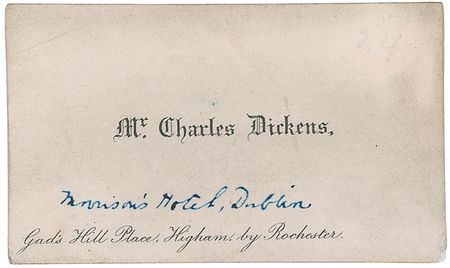 24
Mr. Charles Dickens,
Morrison's Hotel, Dublin
Gad's Hill Place, Higham, by Rochester.